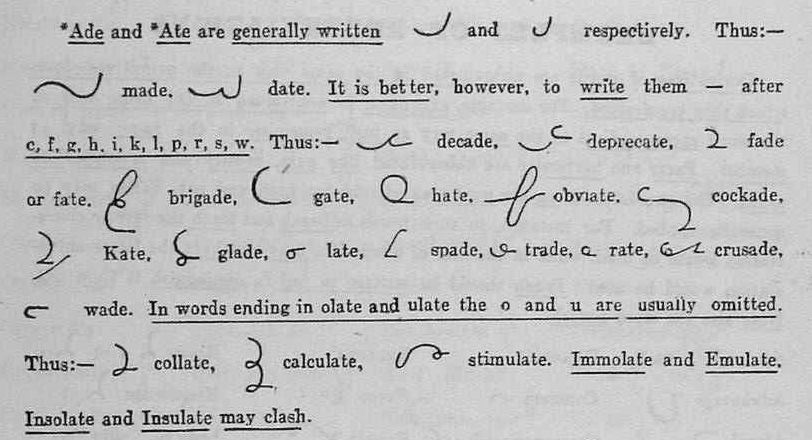 *Ade and *Ate are generally written and respectively. Thus:—
made, date. It is better, however, to write them — after
c, f, g, h, i, k, l, p, r, s, w. Thus:— decade, deprecate, fade
or fate, brigade, gate, hate, obviate, cockade,
Kate, glade, late, spade, trade, rate, crusade,
wade. In words ending in olate and ulate the o and u are usually omitted.
Thus:— collate, calculate, stimulate. Immolate and Emulate,
Insolate and Insulate may clash.